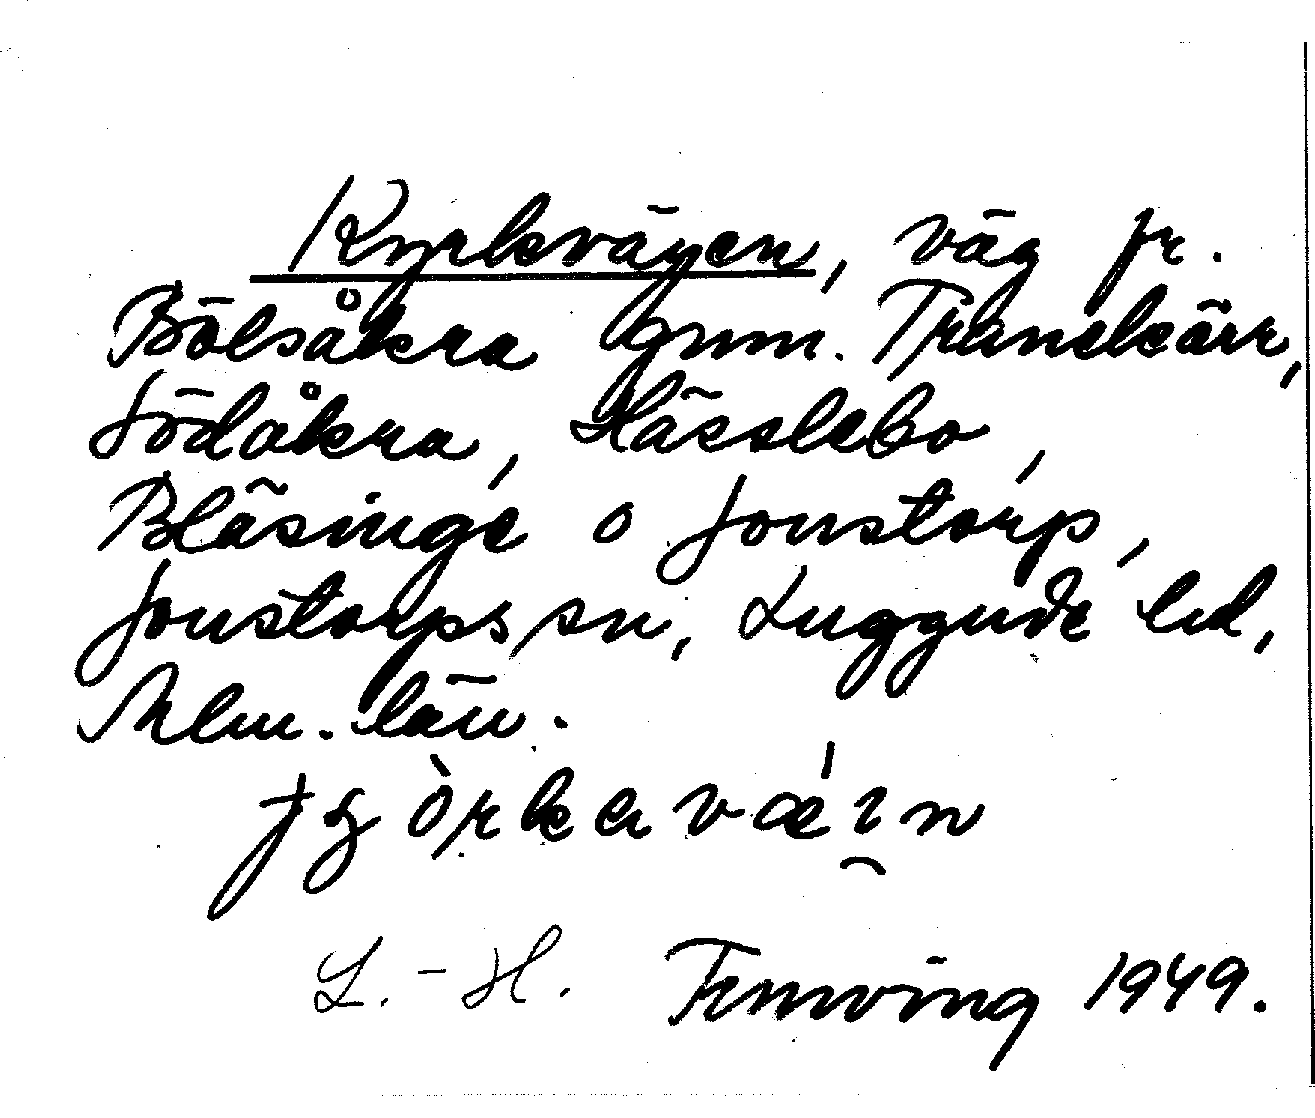 Kyrkevägen, väg fr.
Bölsåkra gnm. Tranekärr,
Södåkra, Hässlebo,
Bläsinge o Jonstorp,
Jonstorps sn, Luggude hd,
Mlm. län.
L.-H. 1949.